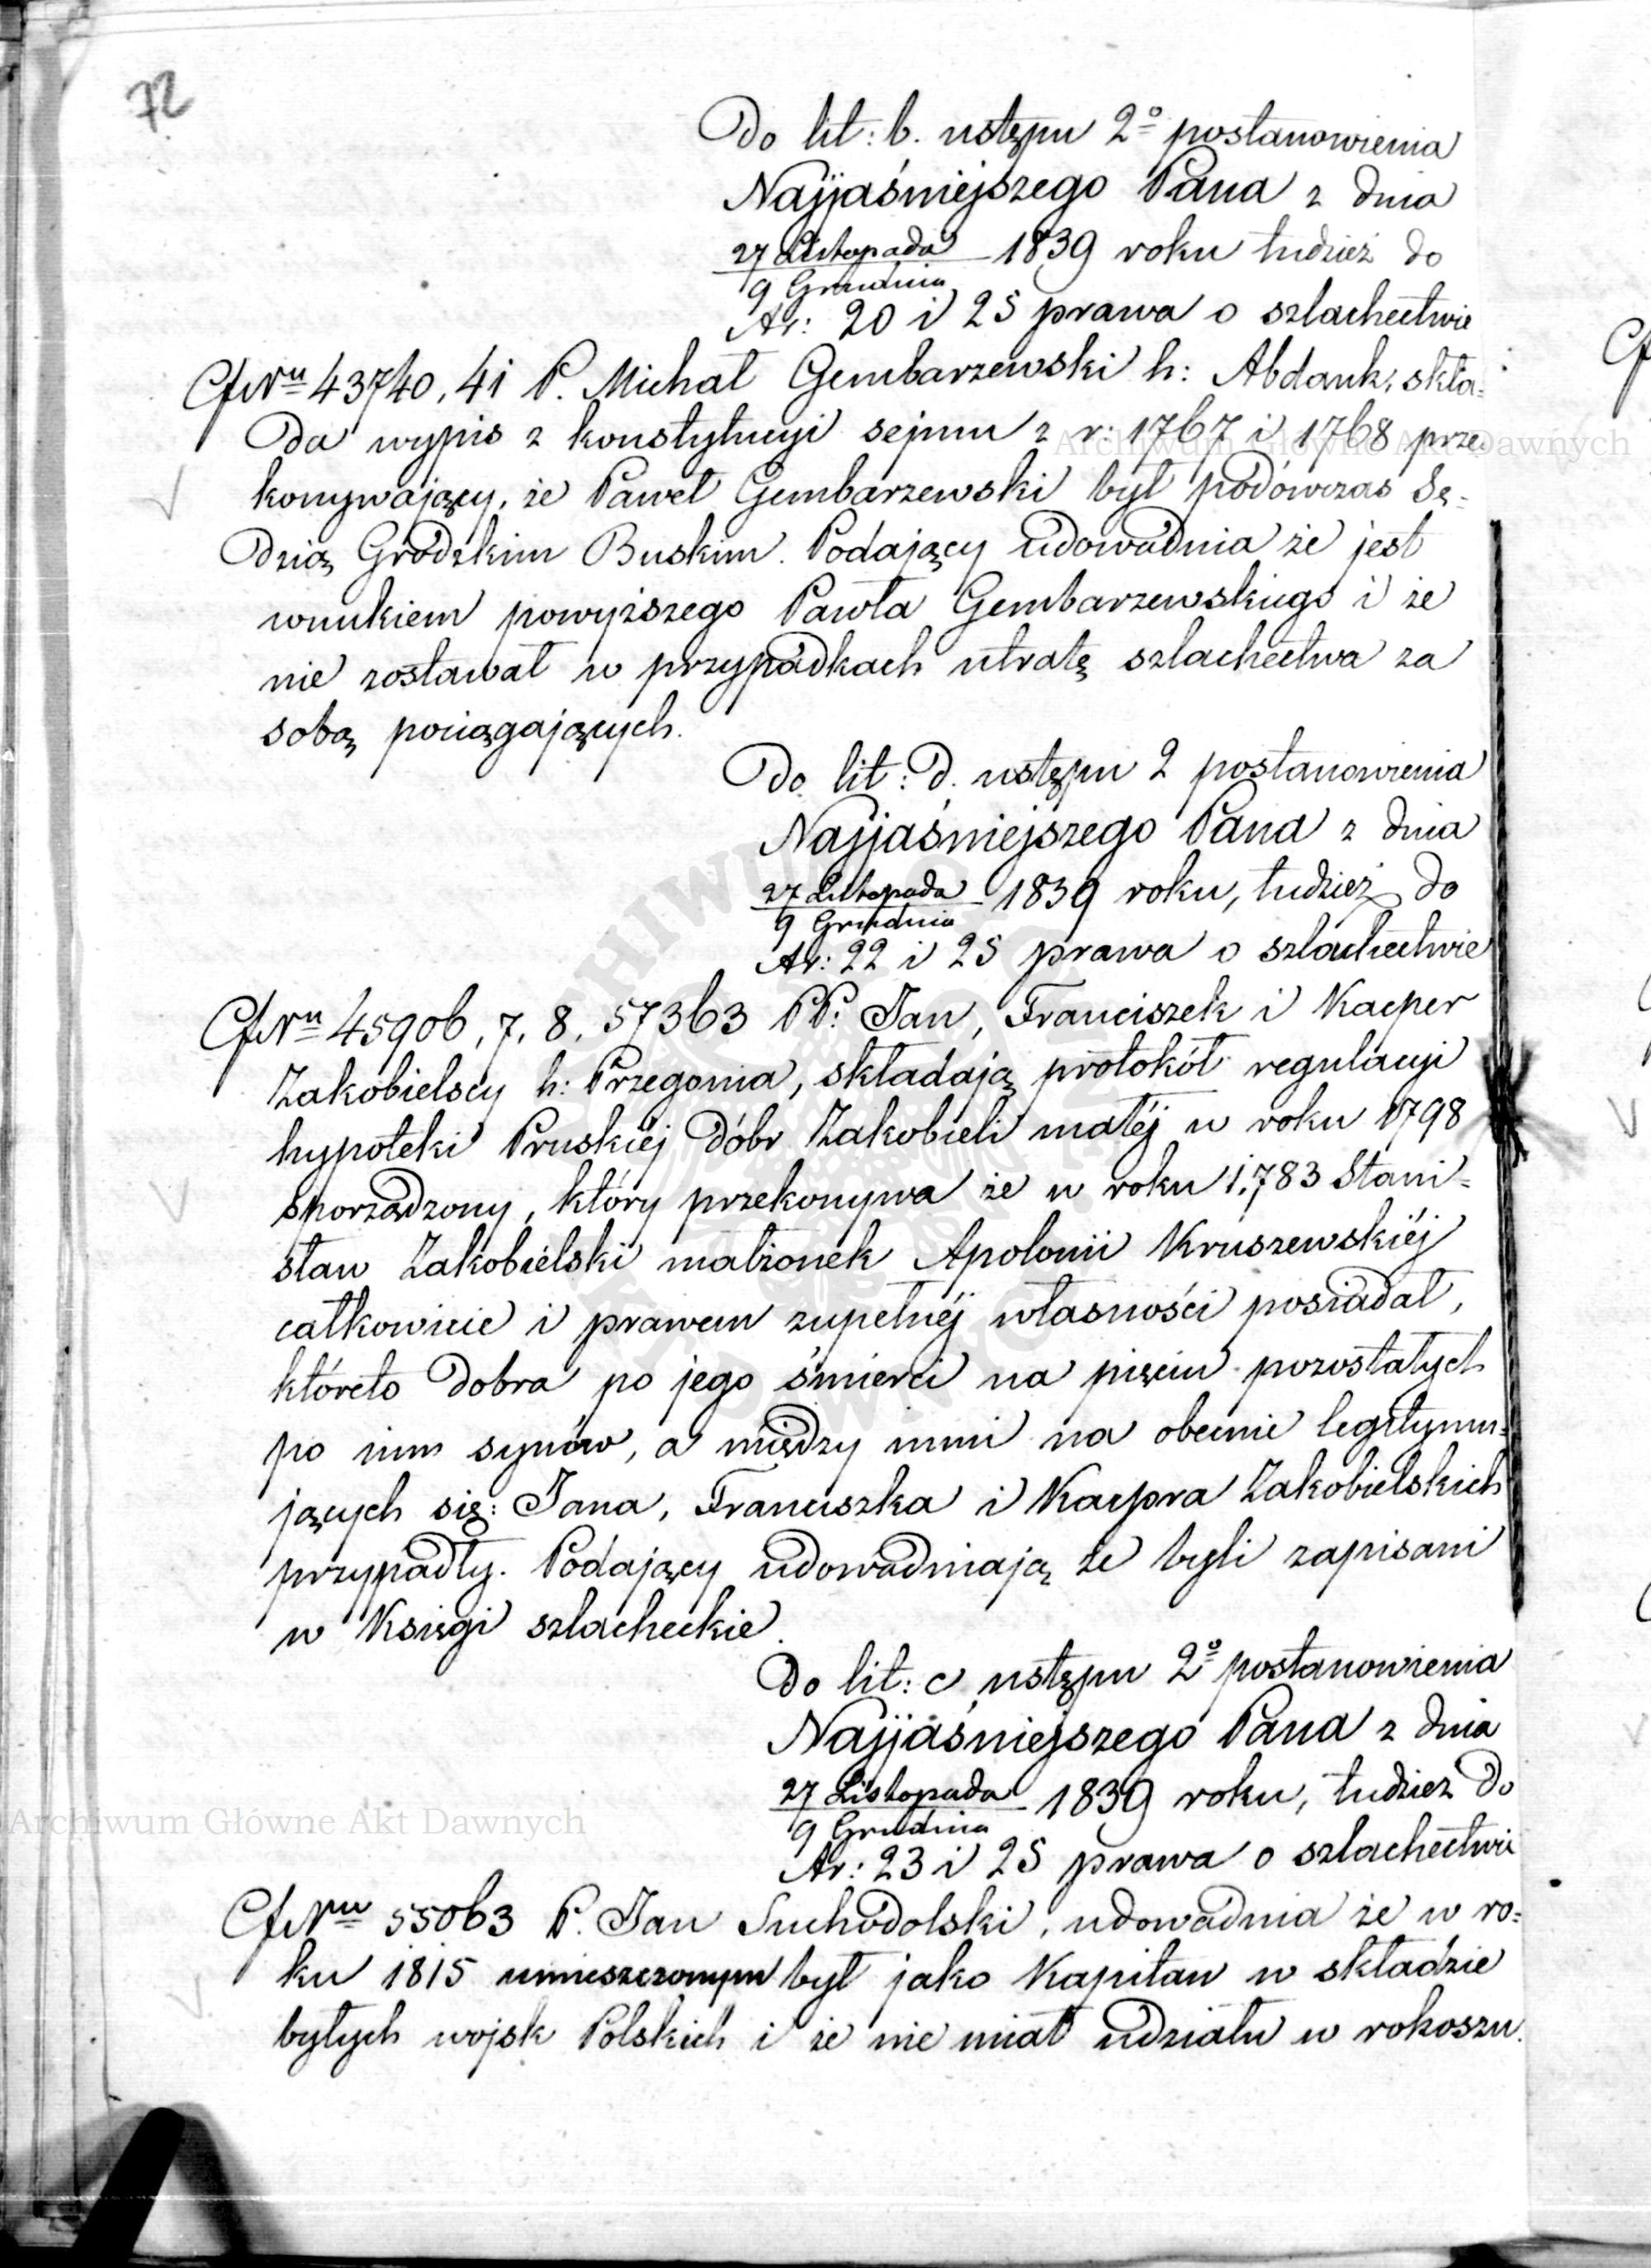 72
Do lit: b. ustępu 2º postanowienia
Najjaśniejszego Pana z dnia
27 Listopada
9 Grudnia 1839 roku tudzież do
Ar: 20 i 25 prawa o szlachectwie
43740, 41 P. Michał Gembarzewski h: Abdank, skła=
da wypis z konstytucyi sejmu z r: 1767 i 1768 prze
konywający, że Paweł Gembarzewski był podówczas Sę=
dzią Grodzkim Buskim. Podający udowadnia że jest
wnukiem powyższego Pawła Gembarzewskiego i że
nie zostawał w przypadkach utratę szlachectwa za
sobą pociągających.
Do lit: d. ustępu 2 postanowienia
Najjaśniejszego Pana z dnia
27 Listopada
9 Grudnia 1839 roku, tudzież do
Ar: 22 i 25 prawa o szlachectwie
45906, 7, 8, 57363 PP. Jan, Franciszek i Kacper
Zakobielscy h: Przegonia, składają protokół regulacyi
hypoteki Pruskiéj dóbr Zakobieli małéj w roku 1798
sporządzony, który przekonywa że w roku 1783 Stani=
sław Zakobielski małżonek Apolonii Kruszewskiéj
całkowicie i prawem zupełnéj własności posiadał,
któreto dobra po jego śmierci na pięciu pozostałych
po nim synów, a między inni na obecnie legitymu=
jących się: Jana, Franciszka i Kacpra Zakobielskich
przypadły. Podający udowadniają że byli zapisani
w Księgi szlacheckie.
Do lit: c ustępu 2º postanowienia
Najjaśniejszego Pana z dnia
27 Listopada
9 Grudnia 1839 roku, tudzież do
Ar: 23 i 25 prawa o szlachectwie
55063 P. Jan Suchodolski, udowadnia że w ro=
ku 1815 umieszczonym był jako Kapitan w składzie
byłych wojsk Polskich i że nie miał udziału w rokoszu.
Archiwum Główne Akt Dawnych
Archiwum Główne Akt Dawnych